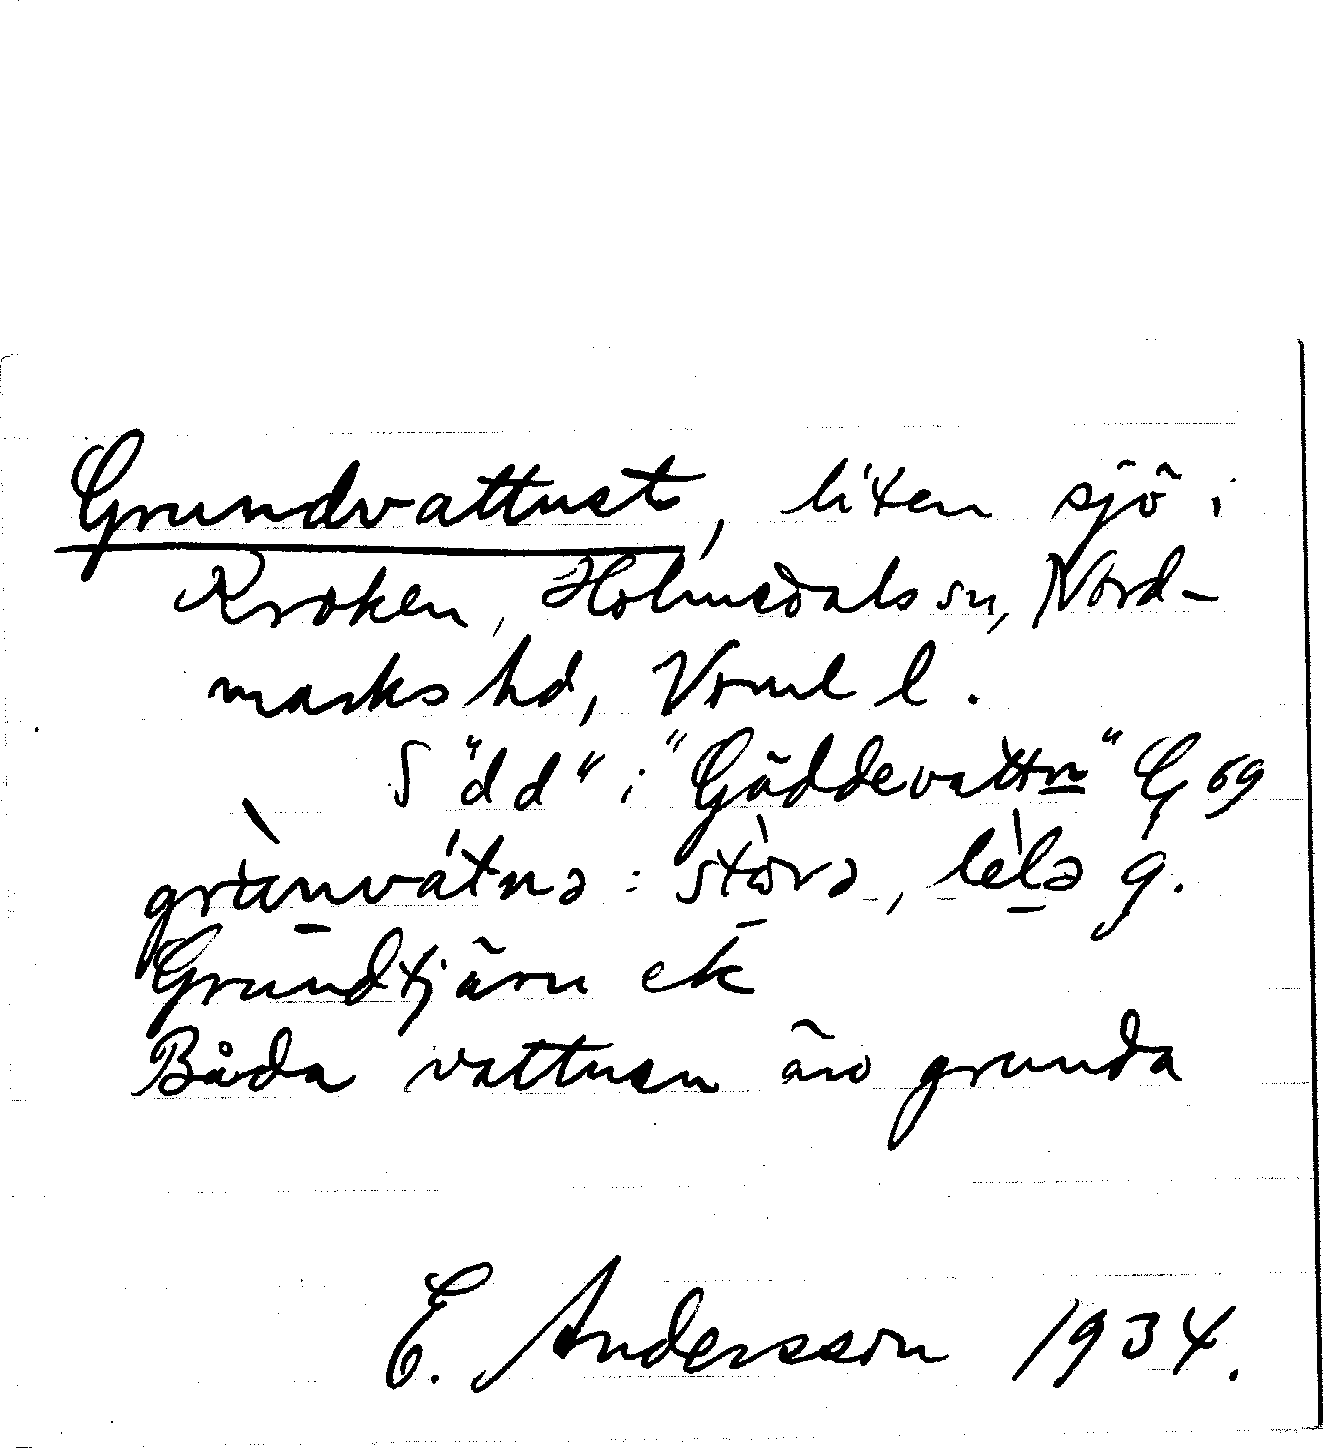 Grundvattnet, liten sjö i
Kroken, Holmedals sn, Nord-
marks hd, Vrml l.
S "dd" i "Gäddevattn" G 69
grùnvátnə : stòrə, lèlə g.
Grundtjärn ek
Båda vattnen äro grunda
E. Andersson 1934.